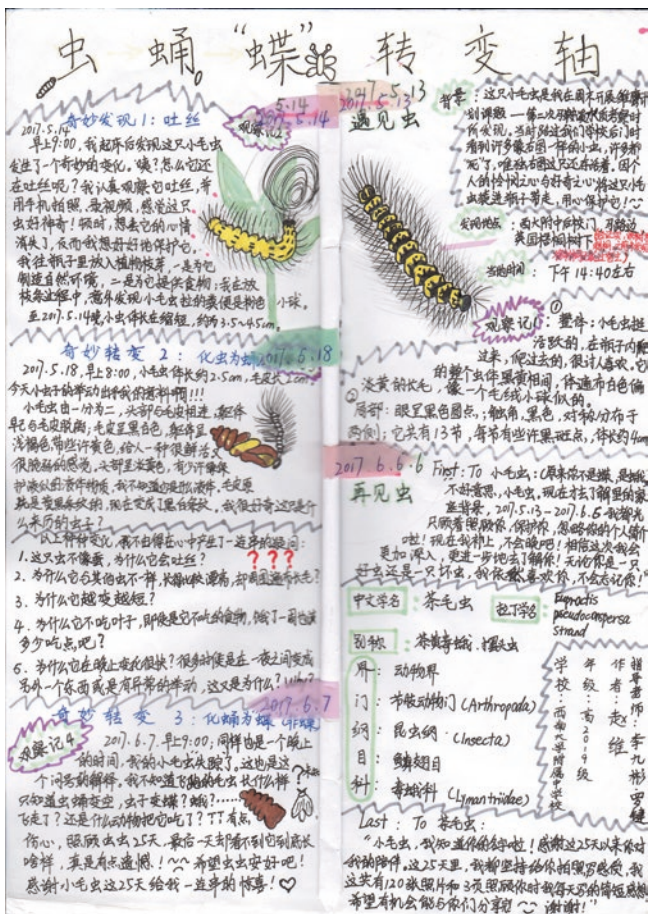 虫 蛹 "蝶" 转 变 轴
奇妙发现1：吐丝
5.14
2017.5.14
观察记2
2017.5.14
早上9:00，我起床后发现这只小毛虫
发生了一个奇妙的变化。咦？怎么它还
在吐丝呢？我认真观察它吐丝，并
用手机拍照、录视频，感觉这只
虫好神奇！顿时，想丢它的心情
消失了，反而我想好好地保护它，
我往瓶子里放入植物枝芽，一是为它
制造自然环境，二是为它提供食物；我在放
枝条过程中，意外发现小毛虫拉的粪便是粉色小球。
至2017.5.14晚小虫体长在缩短，约为3.5~4.5cm。
奇妙转变2：化虫为蛹
2017.5.18
2017.5.18，早上8:00，小毛虫体长约2.5cm，毛皮长2cm
今天小虫子的举动出乎我的意料啊!!!
小毛虫由一分为二，头部与毛皮相连，躯体
早已与毛皮脱离；毛皮呈黑白色，躯体呈
浅褐色，带些许黄色，给人一种很鲜活又
很脆弱的感觉，头部呈淡黄色，有少许
护液似的液体物质，我不知道也是什么液体，毛皮原
么来历的虫子？
以上种种变化，我不由得在心中产生了一连串的疑问：
1. 这只虫不像蚕，为什么它会吐丝？
? ? ?
2. 为什么它与其他虫不一样，长得比较漂亮，却周围遍布长毛？
3. 为什么它越变越短？
4. 为什么它不吃叶子，即使是它不吃的食物，饿了一周也该
多少吃点吧？
5. 为什么它在晚上变化很快？很多时候是在一夜之间变成
另外一个东西或是有异常的举动，这又是为什么？Why?
2017.6.7
奇妙转变3：化蛹为蝶(非蝶)
观察记4
2017.6.7，早上9:00，同样也是一个晚上
的时间，我的小毛虫失踪了，这也是这
个问号的解释，我不知道飞蛾的毛虫长什么样
只知道虫蛹变空，虫子变蝶？蛾？……
飞走了？还是什么动物把它吃了？TT有点
伤心，照顾虫虫25天，最后一天却看不到它到底长
啥样，真是有点遗憾！~~ 希望虫虫安好吧！
感谢小毛虫这25天给我一连串的惊喜！♡
2017.5.13
遇见虫
背景：这只小毛虫是我在周末开展
划课题——第二次
所发现，当时路过我们学校后门时
看到许多像右图一样的小虫，许多都
死了，唯独右图这只还存活着。因个
人的怜悯之心与好奇之心将这只小毛
虫装进瓶子带走，用心保护它！
发现地点：西大附中后校门，马路边
英国梧桐树下
当时时间：下午14:40左右
观察记1：① 整体：小毛虫挺
活跃的，在瓶子内爬
过来，爬过去的，很讨人喜欢，它
的整个虫体黑黄相间，体遍布白色偏
淡黄的长毛，像一个毛线小球似的。
② 局部：眼呈黑色圆点；独角，黑色，对称分布于
两侧；它共有13节，每节有些许黑斑点，体长约4cm
2017.6.6
再见虫
First：To 小毛虫：(原来你不是蝶，是蛾)
不好意思，小毛虫，现在才去了解里的家
庭背景，2017.5.13~2017.6.6 我都光
只顾着照顾你，保护你，忽略你的个人简介
啦！现在我补上，不会晚吧！相信这次我会
更加深入，更进一步地去了解你！无论你是一只
好虫还是一只坏虫，我依然喜欢你，不会忘记你！
中文学名：茶毛虫
拉丁学名：Euproctis
pseudoconspersa
strand
别称：茶黄毒蛾、摆头虫
界：动物界
门：节肢动物门(Arthropoda)
纲：昆虫纲(Insecta)
目：鳞翅目
科：毒蛾科(Lymantriidae)
指导老师：李九彬 罗键
作者：赵维
年级：高2019级
学校：西南大学附属中学校
Last：To 茶毛虫：
"小毛虫，我知道你的名字啦！感谢这25天以来你对
我的陪伴，这25天里，我都坚持给你拍照写感受，我
这共有120张照片和3页照顾你时我每天写的简短感想
希望有机会能与你们分享~~ 谢谢！"